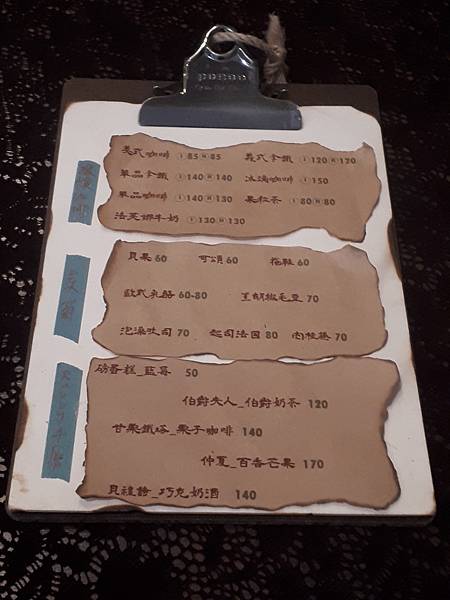 美式咖啡 Ⓘ85Ⓗ85 義式拿鐵 Ⓘ120Ⓗ120
單品拿鐵 Ⓘ140Ⓗ140 冰滴咖啡 Ⓘ150
單品咖啡 Ⓘ140Ⓗ130 果粒茶 Ⓘ80Ⓗ80
法芙娜牛奶 Ⓘ130Ⓗ130
貝果 60 可頌 60 拖鞋 60
歐式乳酪 60-80 黑胡椒毛豆 70
泡澡吐司 70 起司法国 80 肉桂捲 70
磅蛋糕_藍莓 50
伯爵夫人_伯爵奶茶 120
甘栗鐵塔_栗子咖啡 140
仲夏_百香芒果 170
貝禮詩_巧克奶酒 140